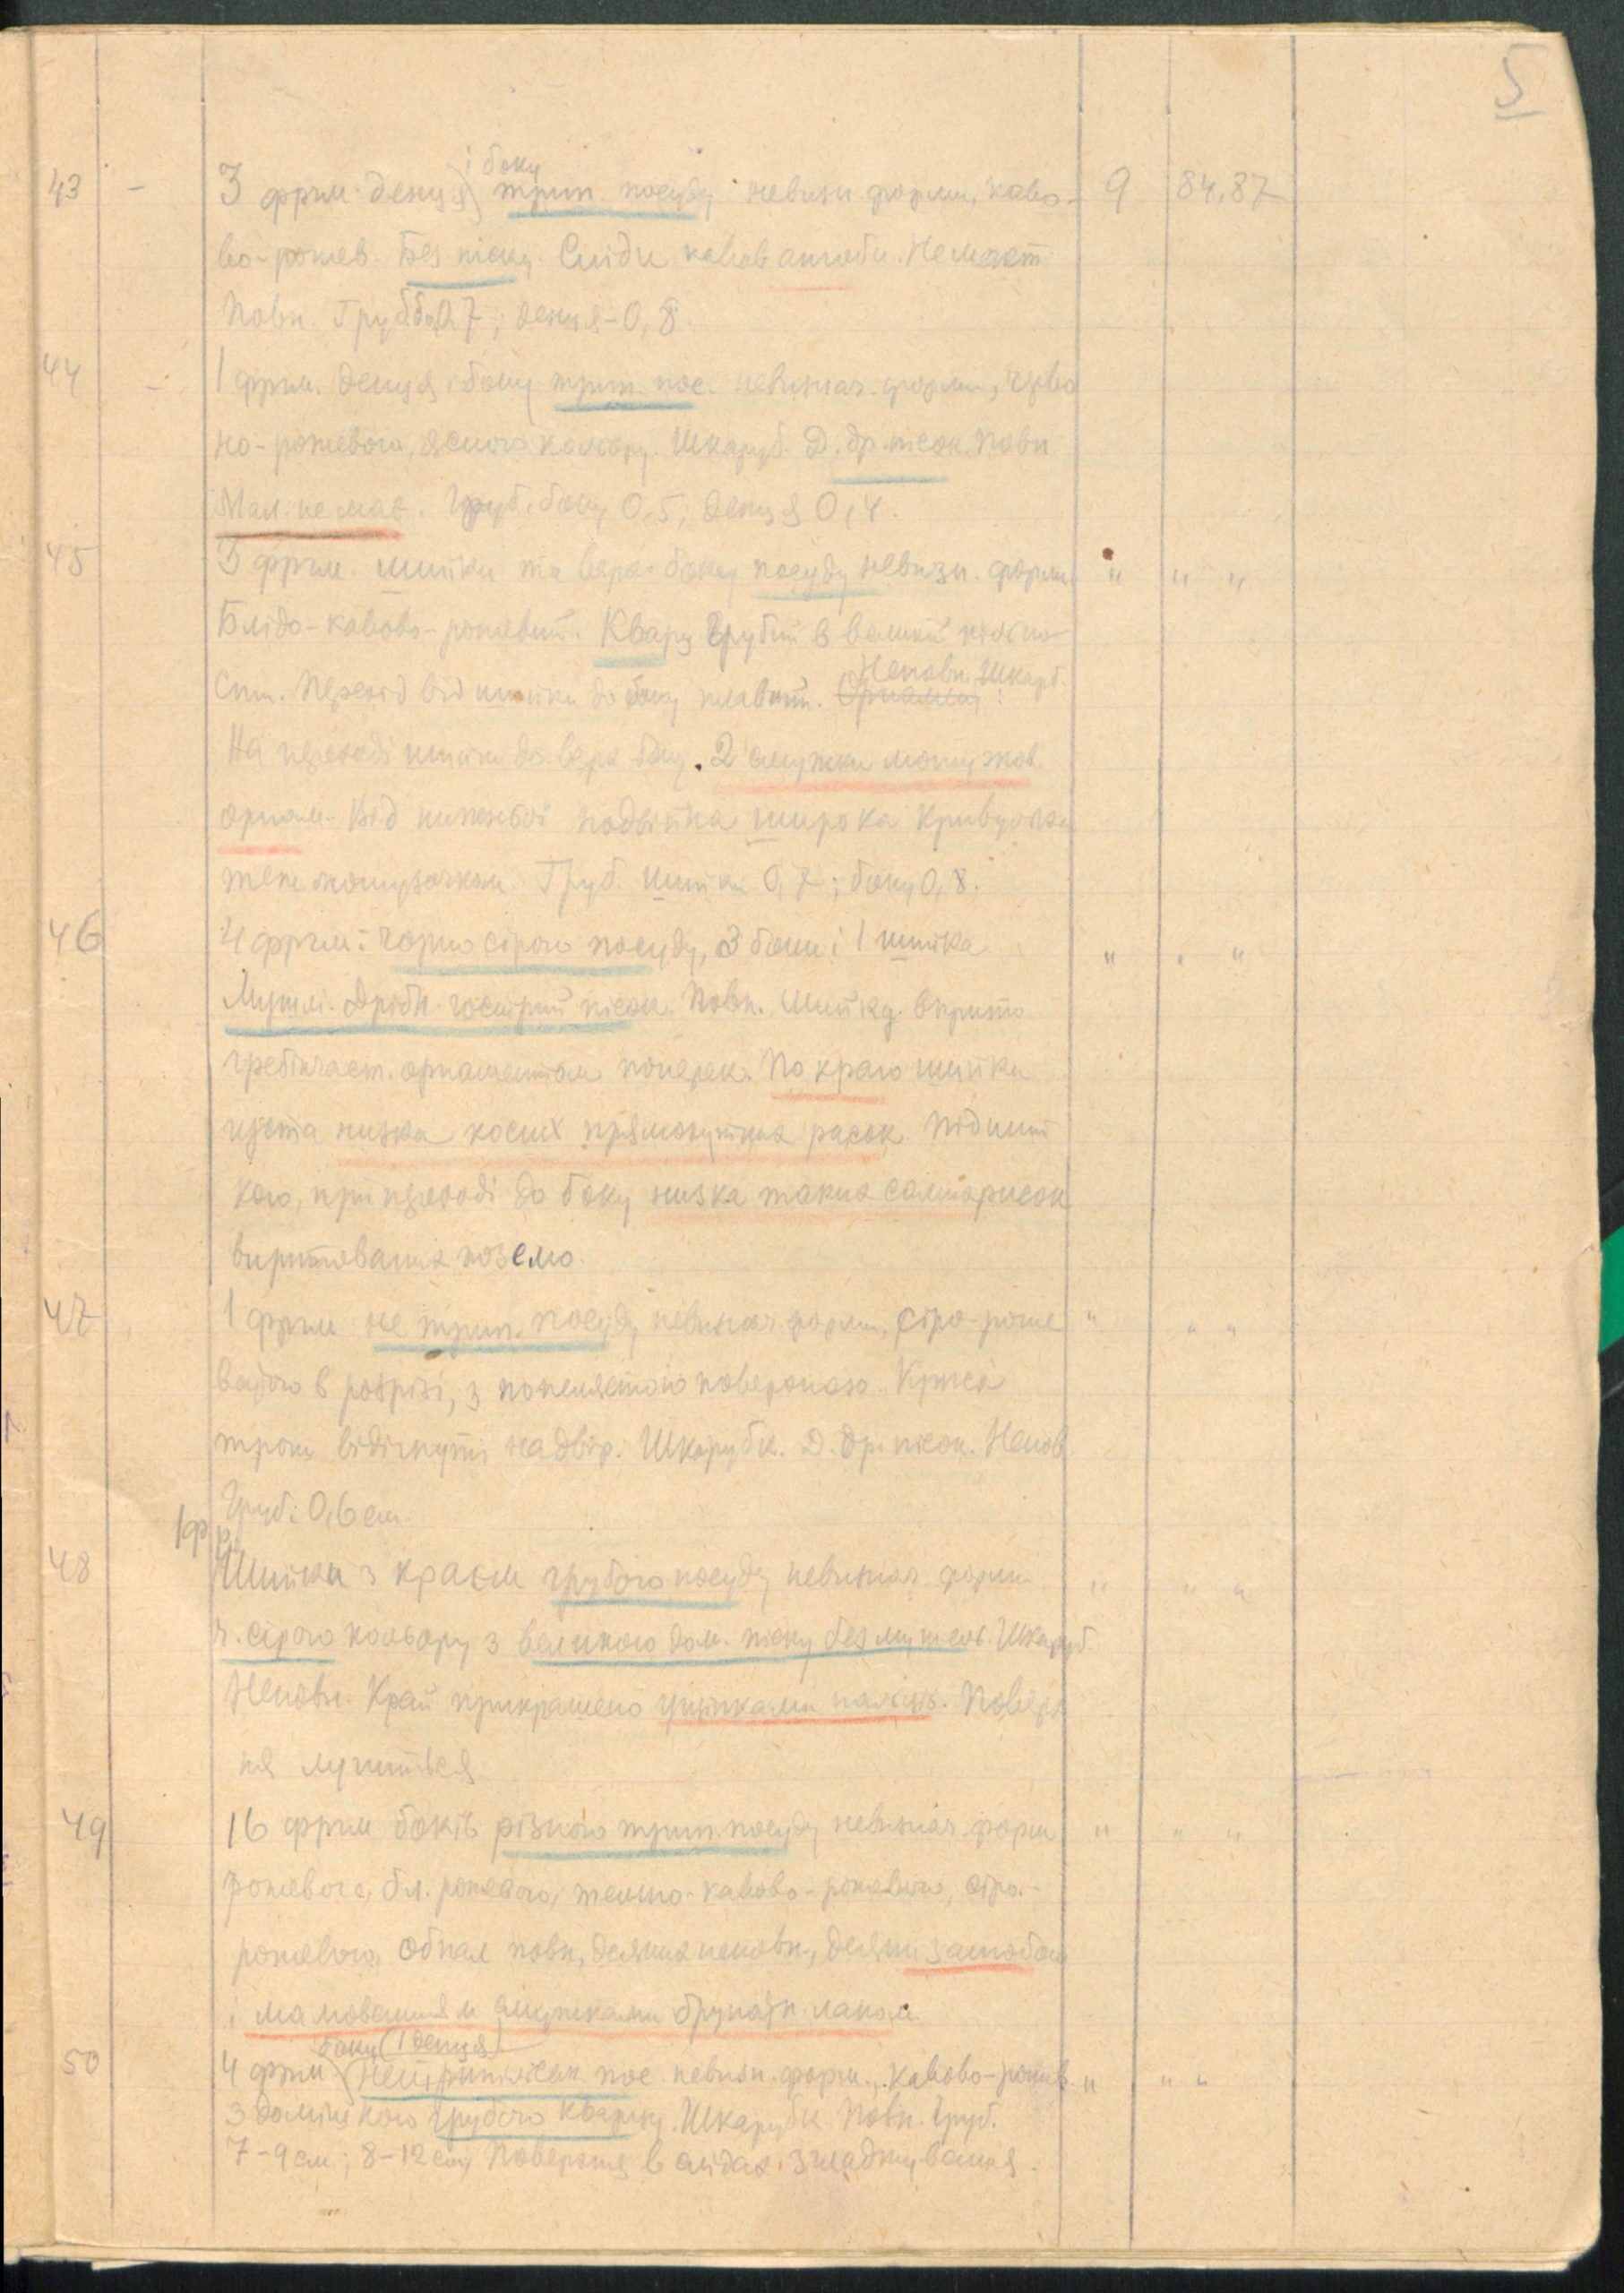 5
43 – 3 фрґм. денця і боку трип. посуду невизн форми, каво- 9 84,87
во-рожев. Без піску. Сліди кавов ангоби. Не маст
Повн. Груб. бо. 0,7; денця – 0,8.
44 – 1 фрґм. денця і боку трип. пос. невизнач. форми, черво
но-рожевого, ясного кольору. Шкаруб. Д. др. пісок. Повн
Мал. не має. Груб. боку 0,5; денця 0,4.
45 3 фрґм. шийки та верх. боку посуду невизн. форми " " "
Блідо-кавово-рожевий. Кварц грубий в великій кілько
сти. Перехід від шийки до боку плавний. Неповн. Шкарб.
На переході шийки до верх боку. 2 смужки мотузков.
орнам. Від нижньої подвійна широка кривулька
теж мотузочком. Груб. шийки 0,7; боку 0,8.
46 4 фрґм: чорно сірого посуду, 3 боки і 1 шийка. " " "
Мушлі. Дрібн. гострий пісок. Повн. Шийку вкрито
гребінчаст. орнаментом поперек. По краю шийки
густа низка косих прямокутних расок. Під ший
кою, при переході до боку низка таких самих рисок
виритованих поземо.
47 1 фрґм не трип. посуду невизнач. форми, сіро-роже " " "
вавого в розрізі, з попелястою поверхнею. Криса
трохи відігнуті надвір. Шкарубк. Д. др. пісок. Непов
Груб. 0,6 см.
48 1 фр. Шийки з краєм грубого посуду невизнач. форми " " "
ч. сірого кольору з великою дом. піску без мушель. Шкаруб.
Неповн. Край прикрашено щипками пальців. Поверх
ня лущиться
49 16 фрґм боків різного трип. посуду невизнач. форм " " "
рожевого, бл. рожевого, темно-кавово-рожевого, сіро-
рожевого. Обпал повн, деяких неповн., деякі з ангобою
і мальованням смужками брунатн. лаком.
50 4 фрґм боку (1 денця) нетрипільськ. пос. невизн. форм., кавово-рожев. " " "
з домішкою грубого кварцу. Шкарубк. Повн. Груб.
7-9 см; 8-12 см, Поверхня в слідах згладжування.